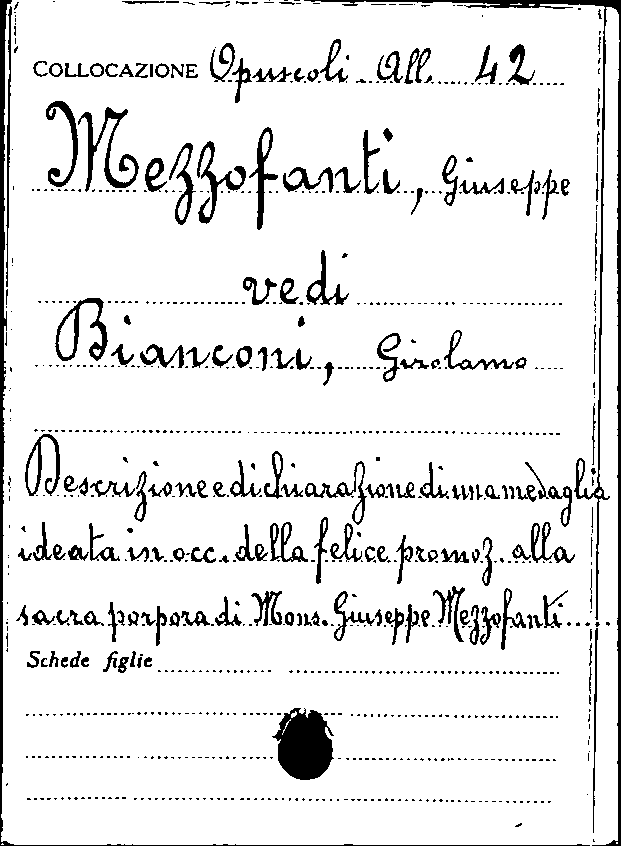 COLLOCAZIONE Opuscoli. All. 42
Mezzofanti, Giuseppe
vedi
Bianconi, Girolamo
Descrizione e dichiarazione di una medaglia
ideata in occ. della felice promoz. alla
sacra porpora di Mons. Giuseppe Mezzofanti.....
Schede figlie